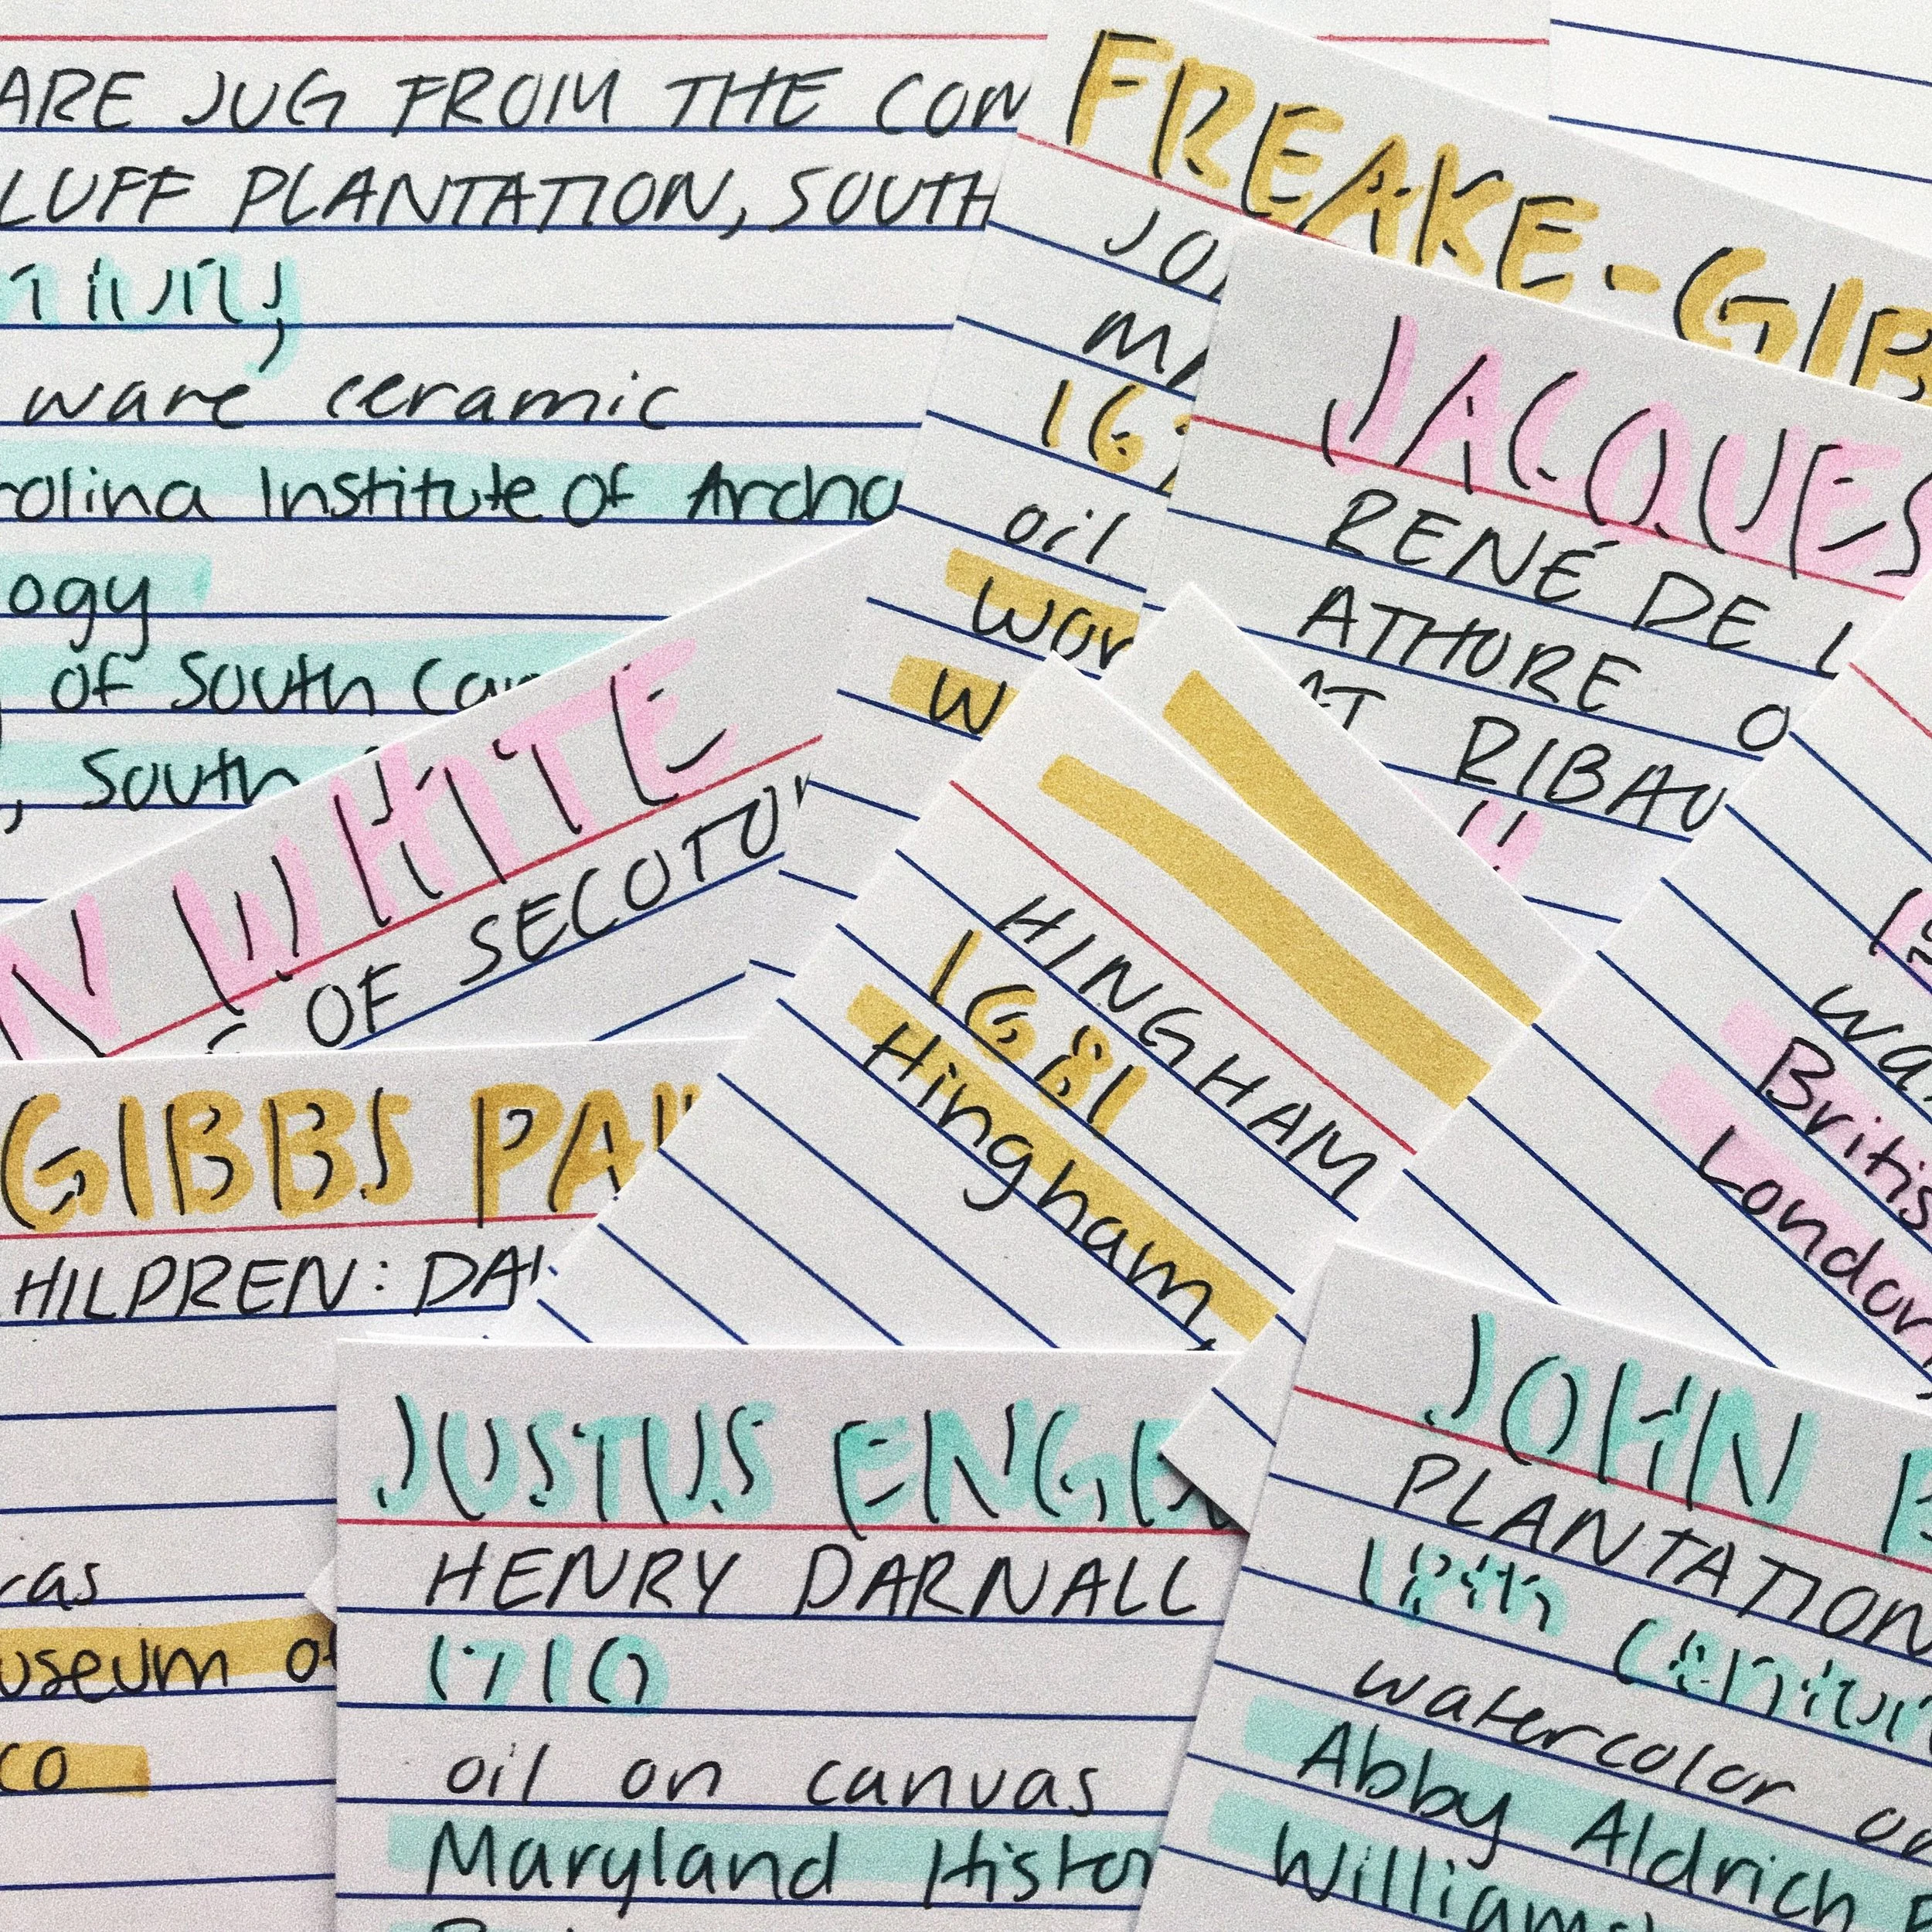 ARE JUG FROM THE COM
LUFF PLANTATION, SOUTH
ware ceramic
rolina Institute of Archa
ogy
of South Car
, South
FREAKE-GIB
JO
MA
16
oil
wor
W
JACQUES
RENÉ DE L
ATHORE O
AT RIBAU
N WHITE
OF SECOTO
HINGHAM
1681
Hingham,
wa
Britis
London
GIBBS PAI
HILDREN: DA
vas
useum of
co
JUSTUS ENGE
HENRY DARNALL
1710
oil on canvas
Maryland Histor
JOHN
PLANTATION
18th Centur
watercolor on
Abby Aldrich R
Williams